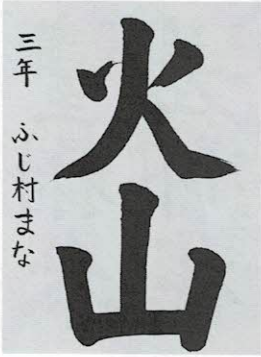 火山
三年 ふじ村まな